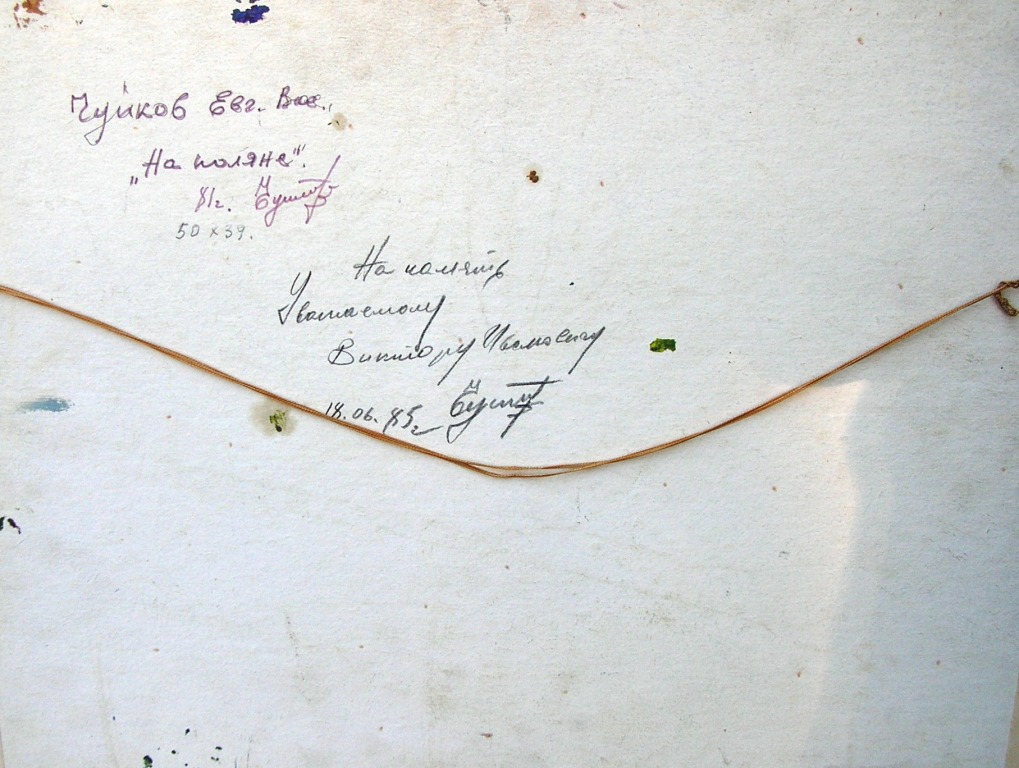 Чуйков Евг. Вас.,
„На поляне".
81г.
50 x 39.
На память
Уважаемому
Виктору
18.06.85г